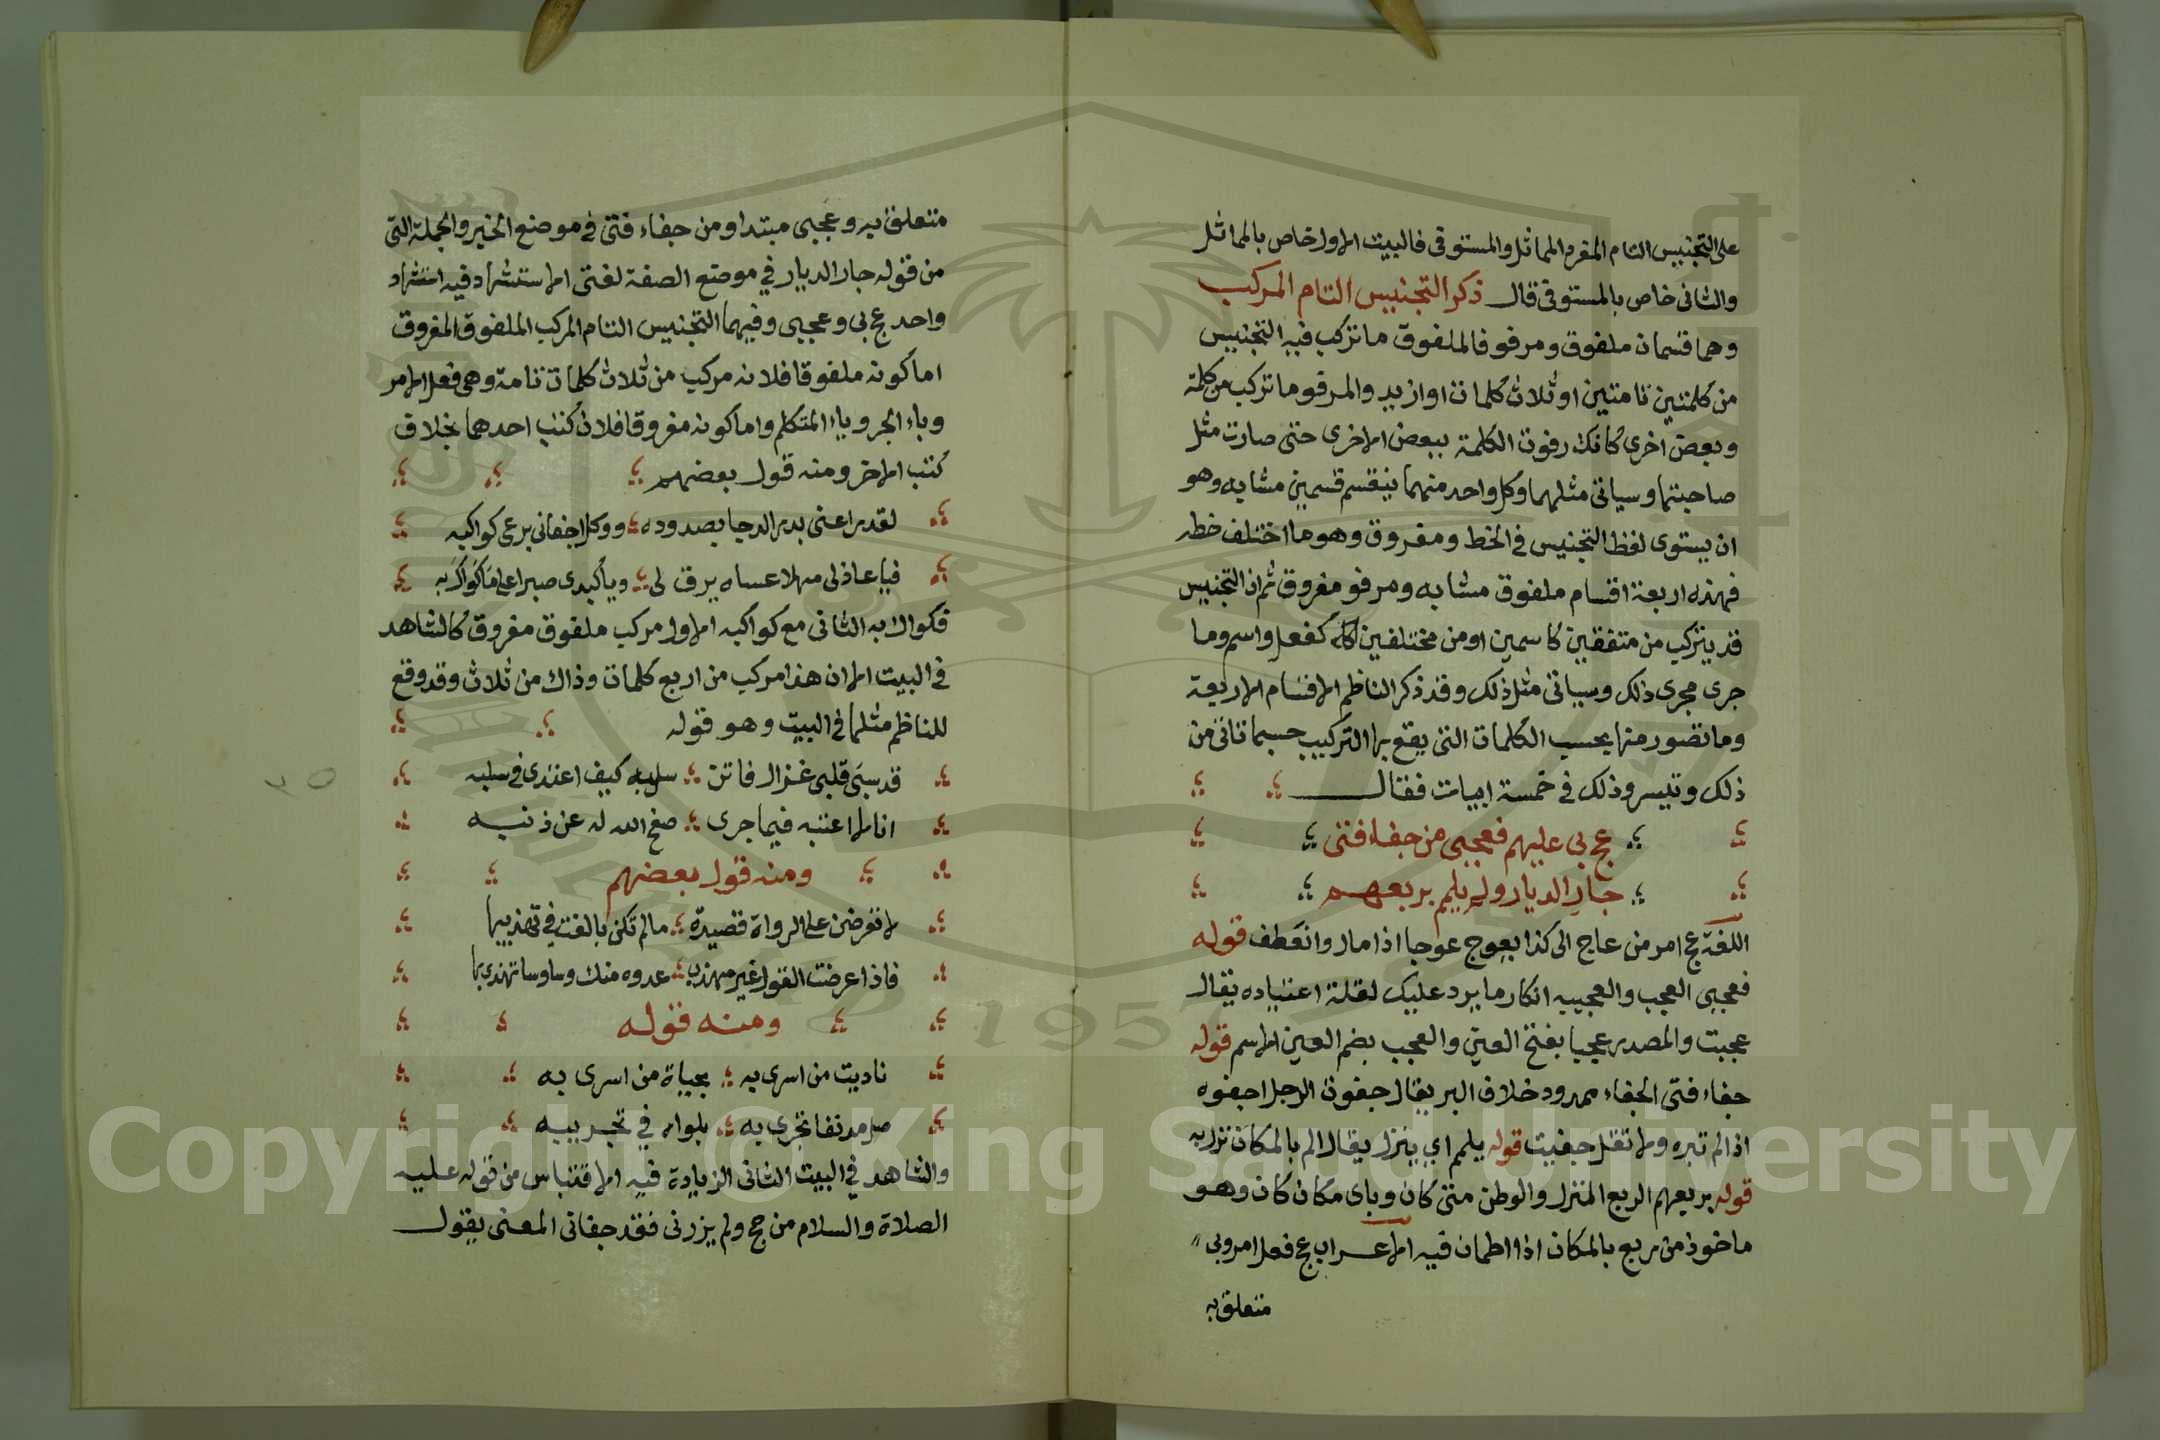 على التجنيس التام المفرد المماثل والمستوفى فالبيت الاول خاص بالمماثل
والثانى خاص بالمستوفى قال ذكر التجنيس التام المركب
وهما قسمان ملفوق ومرفو فالملفوق ما تركب فيه التجنيس
من كلمتين تامتين او ثلاث كلمات او ازيد والمرفو ما تركب من كلمة
وبعض اخرى كانك رفوت الكلمة ببعض الاخرى حتى صارت مثل
صاحبتها وسياتى مثلهما وكل واحد منهما ينقسم قسمين مشابه وهو
ان يستوى لفظا التجنيس فى الخط ومفروق وهو ما اختلف خطه
فهذه اربعة اقسام ملفوق مشابه ومرفو مفروق ثم ان التجنيس
قد يتركب من متفقين كاسمين او من مختلفين كفعل واسم وما
جرى مجرى ذلك وسياتى مثل ذلك وقد ذكر الناظم الاقسام الاربعة
وما تصور منها بحسب الكلمات التى يقع بها التركيب حسبما تاتى من
ذلك وتيسر وذلك فى خمسة ابيات فقال
عج بى عليهم فعجبى من جفاء فتى
جار الديار ولم يلمم بربعهم
اللغة عج امر من عاج الى كذا يعوج عوجا اذا مال وانعطف قوله
فعجبى العجب والعجيبه انكار ما يرد عليك لقلة اعتياده يقال
عجبت والمصدر عجبا بفتح العين والعجب بضم العين الاسم قوله
جفاء فتى الجفاء ممدود خلاف البر يقال جفوت الرجل اجفوه
اذا لم تبره ولا تقل جفيت قوله يلمم اي ينزل يقال الم بالمكان نزل به
قوله بربعهم الربع المنزل والوطن متى كان وباى مكان كان وهو
ماخوذ من ربع بالمكان اذا اطمان فيه الاعراب عج فعل امر وبى
متعلق به
متعلق به وعجبى مبتدا ومن جفاء فتى فى موضع الخبر والجملة التى
من قوله جار الديار في موضع الصفة لفتى الاستشهاد فيه استشهاد
واحد عج بى وعجبى وفيهما التجنيس التام المركب الملفوق المفروق
اما كونه ملفوقا فلانه مركب من ثلاث كلمات تامة وهى فعل الامر
وباء الجر وياء المتكلم واما كونه مفروقا فلان كتب احدهما بخلاف
كتب الاخر ومنه قول بعضهم
لقد راعنى بدر الدجا بصدوده ووكل اجفانى برعى كواكبه
فيا عاذلى مهلا عساه يرق لى ويا كبدى صبرا على ما كواك به
فكواك به الثانى مع كواكبه الاول مركب ملفوق مفروق كالشاهد
فى البيت الا ان هذا مركب من اربع كلمات وذاك من ثلاث وقد وقع
للناظم مثلما فى البيت وهو قوله
قد سبى قلبى غزال فاتن سل به كيف اعتدى فى سلبه
انا لا اعتبه فيما جرى صفح الله له عن ذنبه
ومنه قول بعضهم
لا تعرضن على الرواة قصيدة ما لم تكن بالغت في تهذيبها
فاذا عرضت القول غير مهذب عدوه منك وساوسا تهذى بها
ومنه قوله
ناديت من اسرى به بحياة من اسرى به
صل مدنفا تجرى به بلواه في تجريبه
والشاهد في البيت الثانى الزيادة فيه الاقتباس من قوله عليه
الصلاة والسلام من حج ولم يزرنى فقد جفانى المعنى يقول